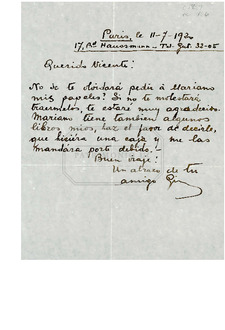 París, le 11-7-192
17, Bd Haussmann - Tel. Gut. 32-05
Querido Vicente:
No se te olvidará pedir á Mariano
mis papeles? Si no te molestara
traermelos, te estare muy agradecido.
Mariano tiene tambien algunos
libros mios, haz el favor de decirle,
que hiciera una caja y me las
mandára porte debido.-
Buen viaje!
Un abrazo de tu
amigo